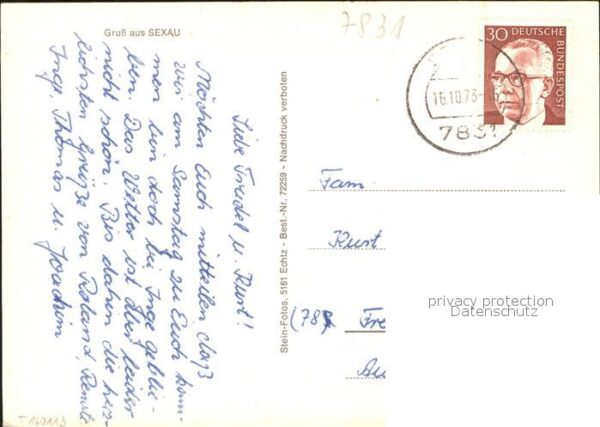 Gruß aus SEXAU
7831
30 DEUTSCHE
BUNDESPOST
16.10.73
7831
Liebe Friedel u. Kurt!
Möchten Euch mitteilen, daß
wir am Samstag zu Euch kom-
men bin doch bei Inge geblie-
ben. Das Wetter ist leider
nicht schön. Bis dahin die herz-
lichsten Grüße von Roland, Renate
Inge, Thomas u. Joachim
Stein-Fotos, 5161 Echtz - Best.-Nr. 72259 - Nachdruck verboten
Fam.
Kurt
(78 Fre
Au
privacy protection
Datenschutz
T160113